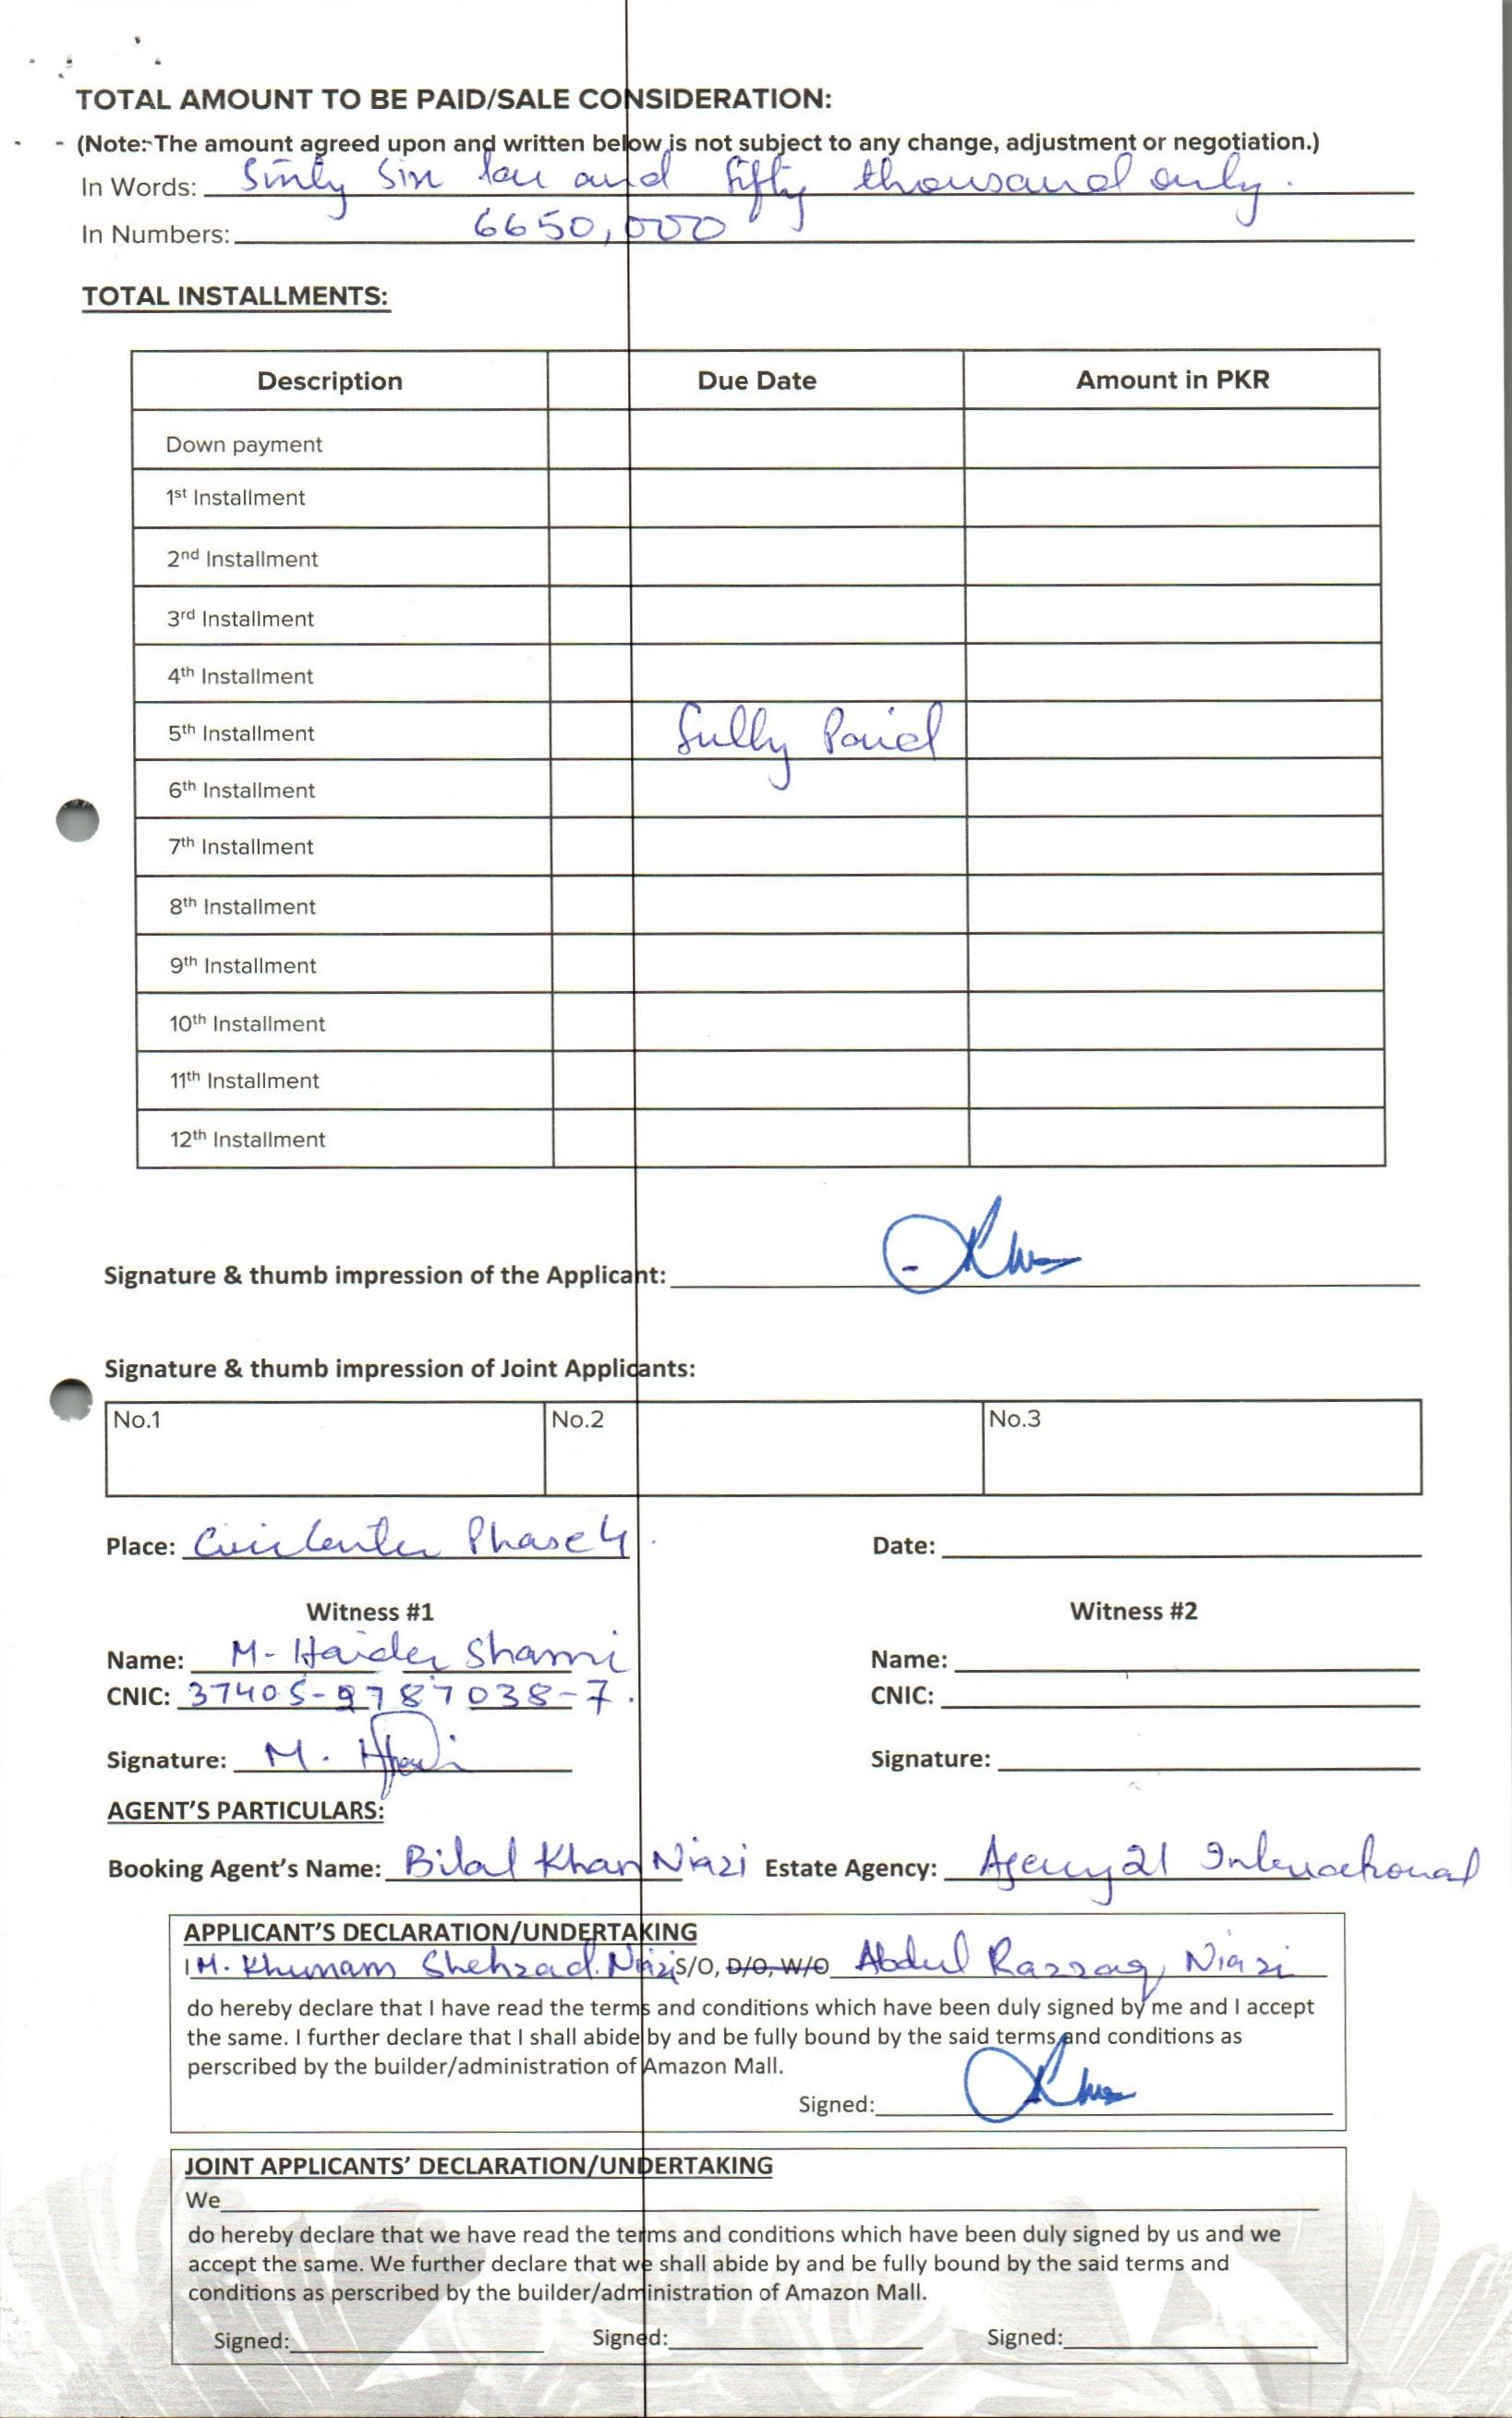 TOTAL AMOUNT TO BE PAID/SALE CONSIDERATION:
(Note: The amount agreed upon and written below is not subject to any change, adjustment or negotiation.)
In Words: Sinly Sin lac and fifty thousand only.
In Numbers: 6650,000
TOTAL INSTALLMENTS:
Description Due Date Amount in PKR
Down payment
1st Installment
2nd Installment
3rd Installment
4th Installment
5th Installment Fully Paid
6th Installment
7th Installment
8th Installment
9th Installment
10th Installment
11th Installment
12th Installment
Signature & thumb impression of the Applicant:
Signature & thumb impression of Joint Applicants:
No.1 No.2 No.3
Place: Civic Center Phase 4. Date:
Witness #1 Witness #2
Name: M. Haider Shami Name:
CNIC: 37405-9787038-7. CNIC:
Signature: M. Signature:
AGENT'S PARTICULARS:
Booking Agent's Name: Bilal Khan Niazi Estate Agency: Agency21 International
APPLICANT'S DECLARATION/UNDERTAKING
I M. Khurram Shehzad Niazi S/O, D/O, W/O Abdul Razzaq Niazi
do hereby declare that I have read the terms and conditions which have been duly signed by me and I accept
the same. I further declare that I shall abide by and be fully bound by the said terms and conditions as
perscribed by the builder/administration of Amazon Mall.
Signed:
JOINT APPLICANTS' DECLARATION/UNDERTAKING
We
do hereby declare that we have read the terms and conditions which have been duly signed by us and we
accept the same. We further declare that we shall abide by and be fully bound by the said terms and
conditions as perscribed by the builder/administration of Amazon Mall.
Signed: Signed: Signed: